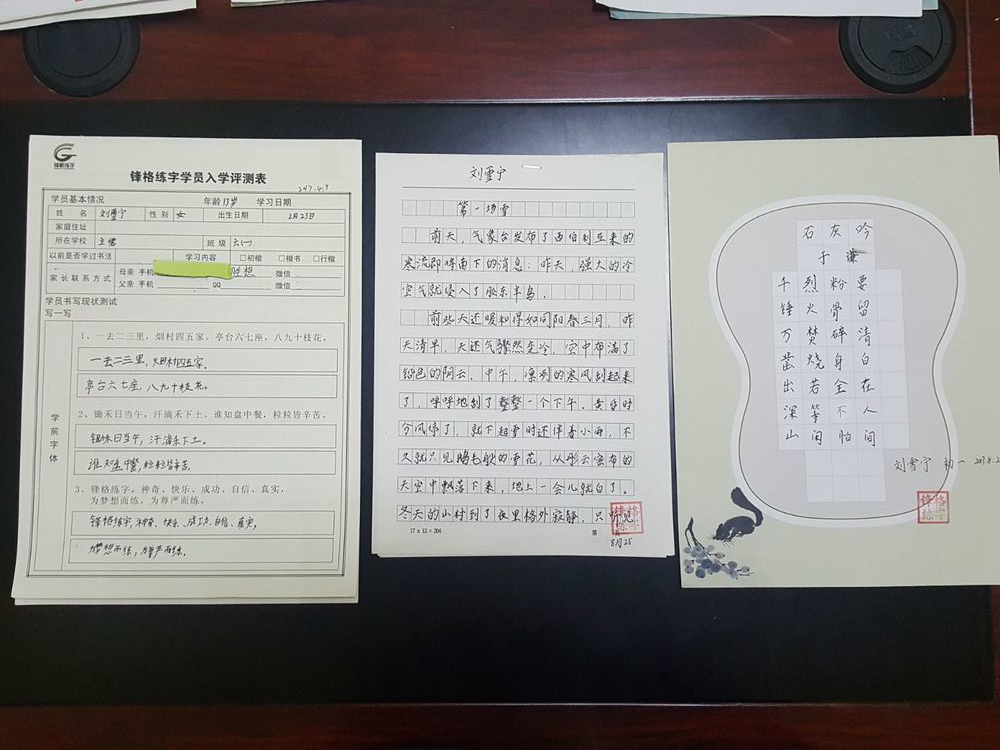 锋格练字
锋格练字学员入学评测表
学员基本情况 年龄 13岁 学习日期
姓 名 刘雪宁 性 别 女 出生日期 2月23日
家庭住址
所在学校 班 级 六(一)
以前是否学过书法 学习内容 □初楷 □楷书 □行楷
家长联系方式 母亲 手机 微信
父亲 手机 QQ 微信
学员书写现状测试
写一写
学前字体
1、一去二三里,烟村四五家。亭台六七座,八九十枝花。
一去二三里,烟村四五家。
亭台六七座,八九十枝花。
2、锄禾日当午,汗滴禾下土。谁知盘中餐,粒粒皆辛苦。
锄禾日当午,汗滴禾下土。
谁知盘中餐,粒粒皆辛苦。
3、锋格练字,神奇、快乐、成功、自信、真实,
为梦想而练,为尊严而练。
锋格练字,神奇、快乐、成功、自信、真实,
为梦想而练,为尊严而练。
刘雪宁
第一场雪
前天,气象台发布了西伯利亚来的
寒流即将南下的消息;昨天,强大的冷
空气就侵入了胶东半岛。
前些天还暖和得如同阳春三月,昨
天清早,天还气骤然变冷,空中布满了
铅色的阴云。中午,凛冽的寒风刮起来
了,呼呼地刮了整整一个下午。黄昏时
分风停了,就下起雪时还伴着小雨,不
久就只见鹅毛般的雪花,从彤云密布的
天空中飘落下来,地上一会儿就白了。
冬天的山村到了夜里格外寂静,只听见
17 x 12 = 204 第 页
8月25
锋格练字
石灰吟
于谦
千锤万凿出深山
烈火焚烧若等闲
粉骨碎身全不怕
要留清白在人间
刘雪宁 初一
锋格练字